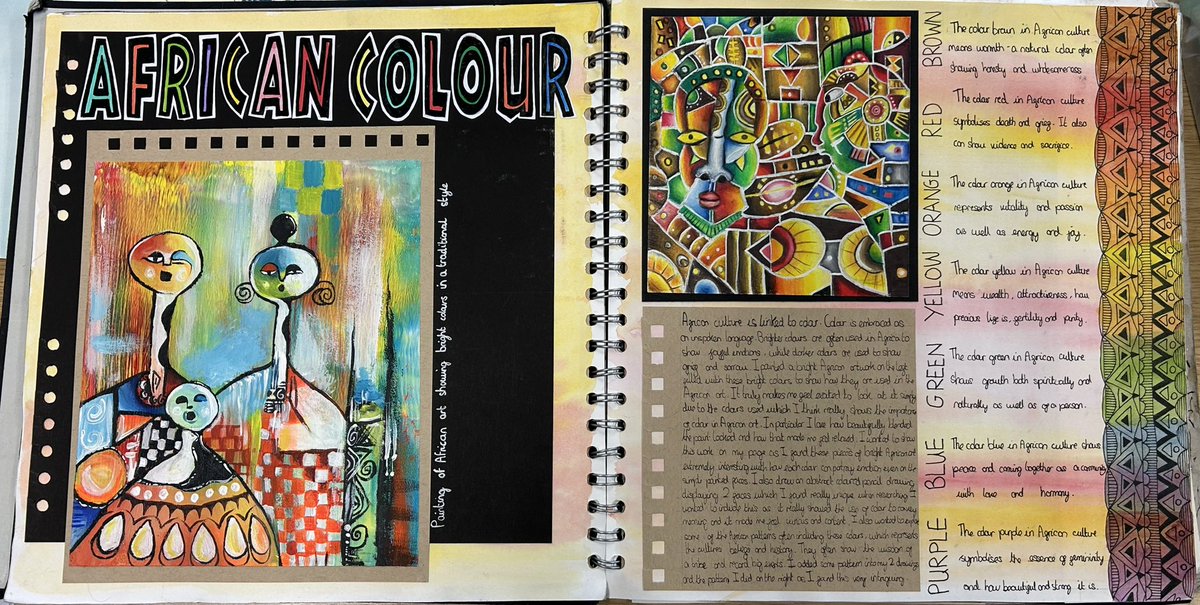 AFRICAN COLOUR
Painting of African art showing bright colours in a traditional style
African culture is linked to colour. Colour is embraced as
an unspoken language. Brighter colours are often used in Africa to
show joyful emotions, while darker colours are used to show
grief and sorrow. I painted a bright African artwork on the left
filled with these bright colours to show how they are used in the
African art. It truly makes me feel excited to look at it simply
due to the colours used which I think really shows the importance
of colour in African art. In particular I love how beautifully blended
the paint looked and how that made me feel relaxed. I wanted to show
this work on my page as I found these pieces of bright African art
extremely interesting with how each colour can portray emotion even on the
simply painted faces. I also drew an abstract coloured pencil drawing
displaying 2 faces which I found really unique when researching. I
wanted to include this as it really showed the use of colour to convey
meaning and it made me feel curious and content. I also wanted to explore
some of the African patterns often including these colours, which represents
the cultures beliefs and history. They often show the wisdom of
a tribe and record big events. I added some pattern into my 2 drawings
and the pattern I did on the right as I found this very intriguing.
BROWN
The colour brown in African culture
means warmth - a natural colour often
showing honesty and wholesomeness.
RED
The colour red in African culture
symbolises death and grief. It also
can show violence and sacrifice.
ORANGE
The colour orange in African culture
represents vitality and passion
as well as energy and joy.
YELLOW
The colour yellow in African culture
means wealth, attractiveness, how
precious life is, fertility and purity.
GREEN
The colour green in African culture
shows growth both spiritually and
naturally as well as of a person.
BLUE
The colour blue in African culture shows
peace and coming together as a community
with love and harmony.
PURPLE
The colour purple in African culture
symbolises the essence of femininity
and how beautiful and strong it is.